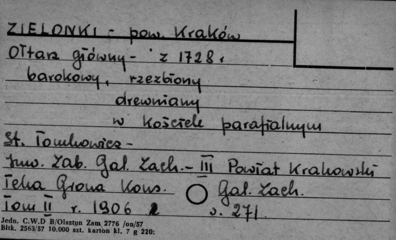 ZIELONKI - pow. Kraków
Ołtarz główny - z 1728 r
barokowy, rzeźbiony
drewniany
w kościele parafialnym
St. Tomkowicz -
Inw. Zab. Gal. Zach. - III Powiat Krakowski
Teka Grona Kons. Gal. Zach.
Tom II r. 1906 s. 271
Jedn. C.W.D B/Olsztyn Zam 2776 /on/57
Bltk. 2563/57 10.000 szt. karton kl. 7 g 220: